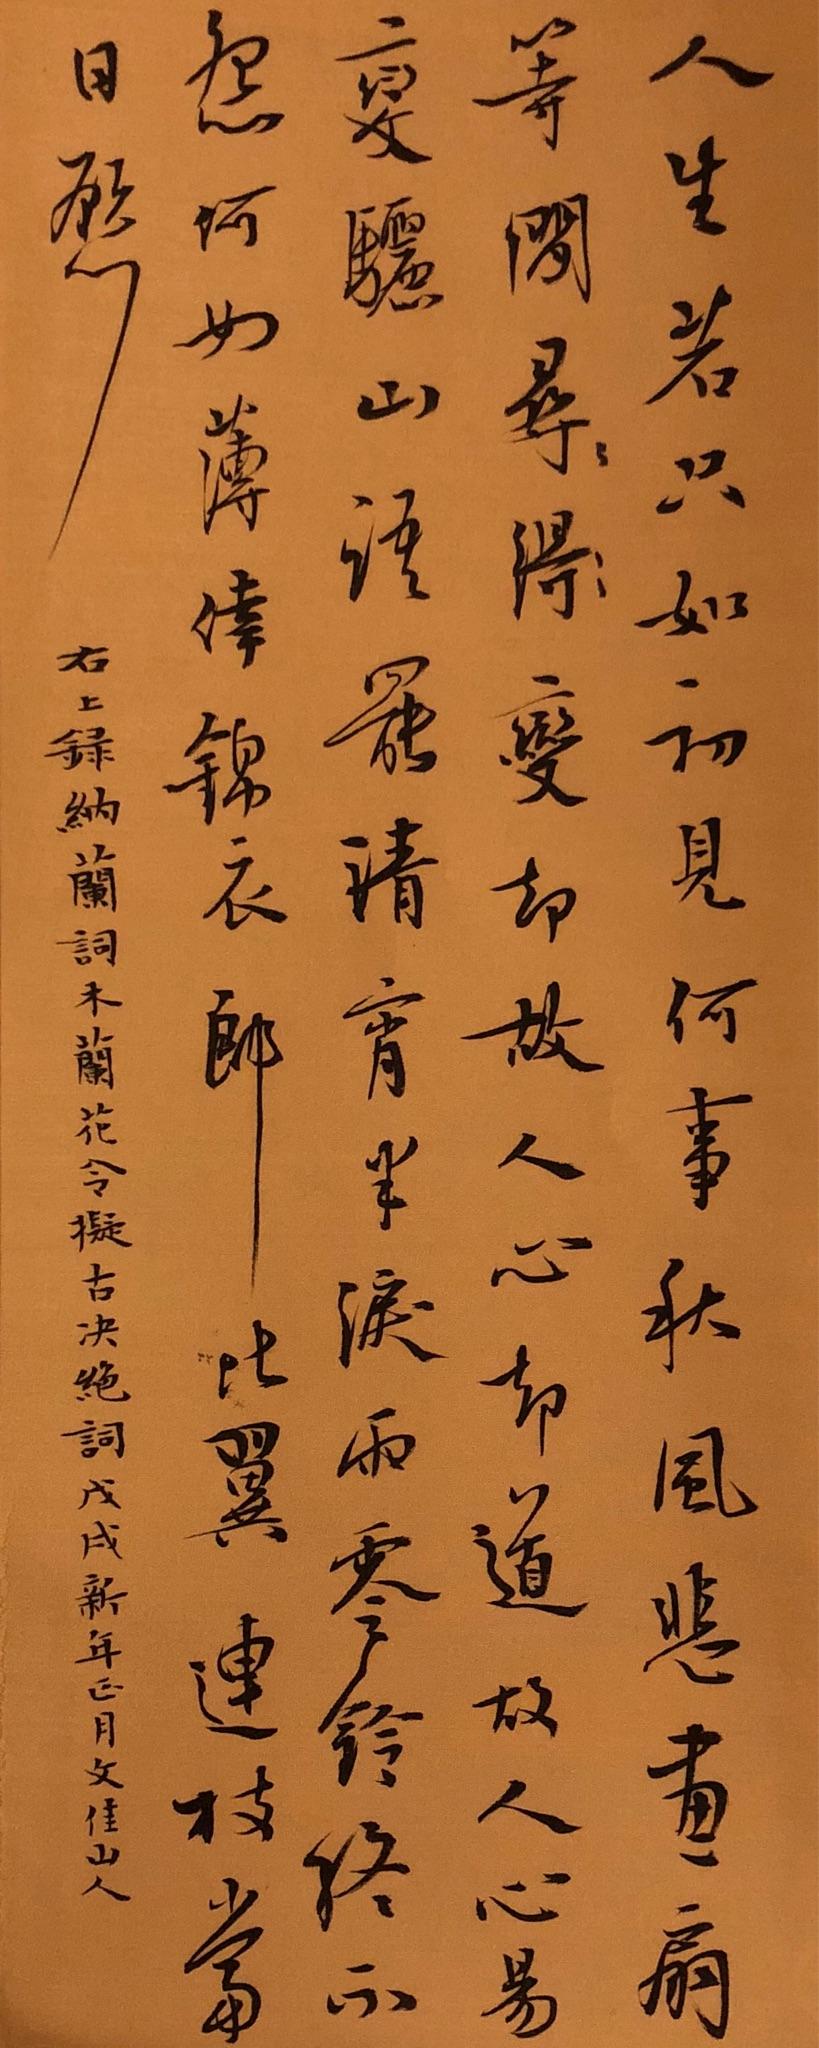 人生若只如初見何事秋風悲畫扇
等間尋得變却故人心却道故人心易
變驪山語罷清宵半淚雨零鈴終不
怨何如薄倖錦衣郎比翼連枝當
日願
右上録納蘭詞木蘭花令擬古决絶詞戊戌新年正月文佳山人